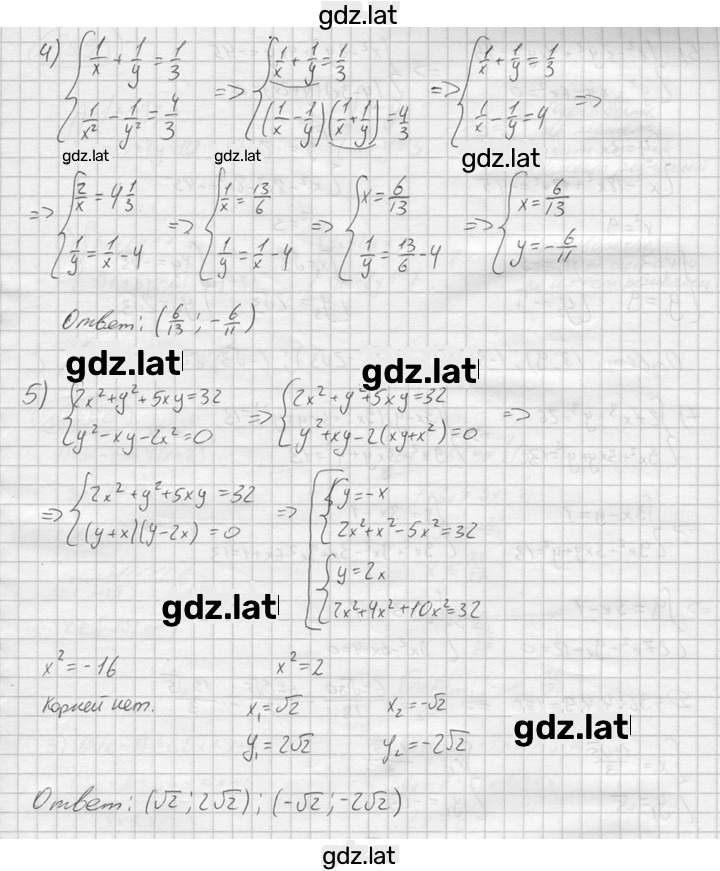 gdz.lat
4) { 1/x + 1/y = 1/3 ; 1/x² - 1/y² = 4/3 => { 1/x + 1/y = 1/3 ; (1/x - 1/y)(1/x + 1/y) = 4/3 => { 1/x + 1/y = 1/3 ; 1/x - 1/y = 4 =>
gdz.lat gdz.lat gdz.lat
=> { 2/x = 4 1/3 ; 1/y = 1/x - 4 => { 1/x = 13/6 ; 1/y = 1/x - 4 => { x = 6/13 ; 1/y = 13/6 - 4 => { x = 6/13 ; y = -6/11
Ответ: (6/13 ; -6/11)
gdz.lat gdz.lat
5) { 2x² + y² + 5xy = 32 ; y² - xy - 2x² = 0 => { 2x² + y² + 5xy = 32 ; y² + xy - 2(xy + x²) = 0 =>
=> { 2x² + y² + 5xy = 32 ; (y + x)(y - 2x) = 0 => [ { y = -x ; 2x² + x² - 5x² = 32 ; { y = 2x ; 2x² + 4x² + 10x² = 32
gdz.lat
x² = -16 x² = 2
Корней нет. x₁ = √2 x₂ = -√2
gdz.lat
y₁ = 2√2 y₂ = -2√2
Ответ: (√2 ; 2√2) ; (-√2 ; -2√2)
gdz.lat